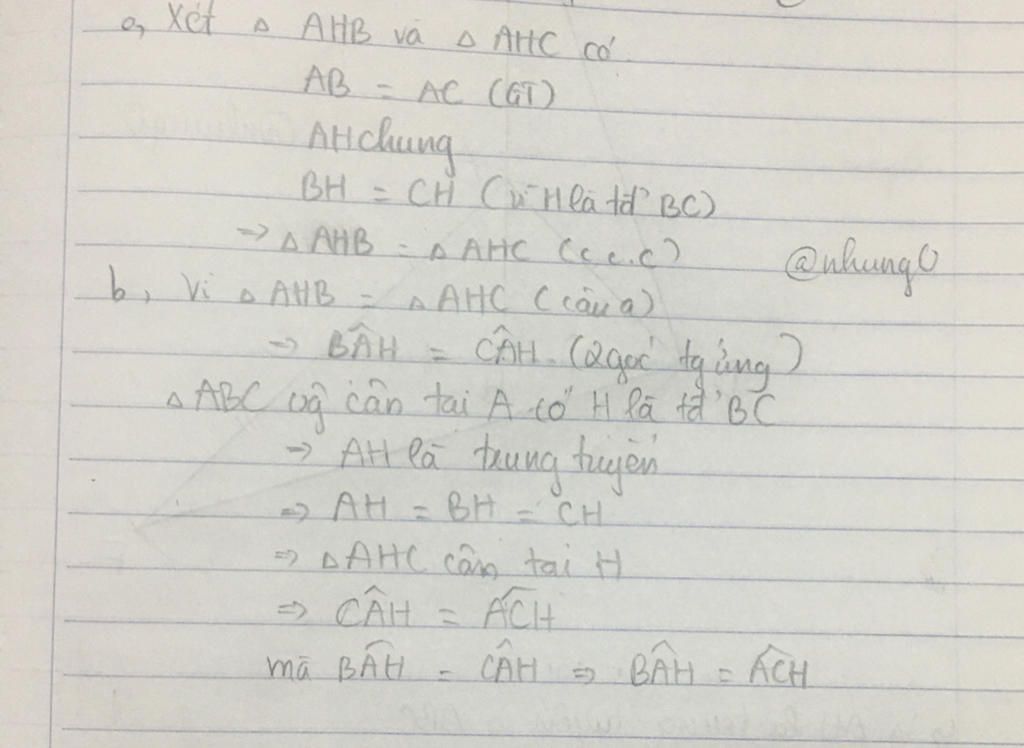 a, Xét △ AHB và △ AHC có
AB = AC (GT)
AH chung
BH = CH (vì H là tđ' BC)
=> △ AHB = △ AHC (c.c.c)
@nhung
b, Vì △ AHB = △ AHC (câu a)
=> BÂH = CÂH. (2 góc tg ứng)
△ ABC vg cân tai A có H là tđ' BC
=> AH là trung tuyến
=> AH = BH = CH
=> △ AHC cân tai H
=> CÂH = ACH
mà BÂH = CÂH => BÂH = ACH